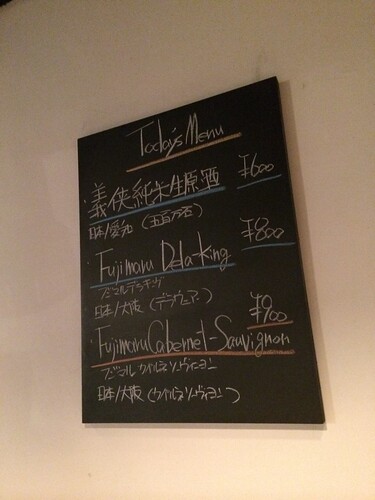 Today's Menu
義侠純米生原酒 ¥600
日本/愛知 (五百万石)
Fujimaru Dela-king ¥800
フジマルデラキング
日本/大阪 (デラウェアー)
¥900
Fujimaru Cabernet-Sauvignon
フジマル カベルネソーヴィニヨン
日本/大阪 (カベルネソーヴィニヨン)